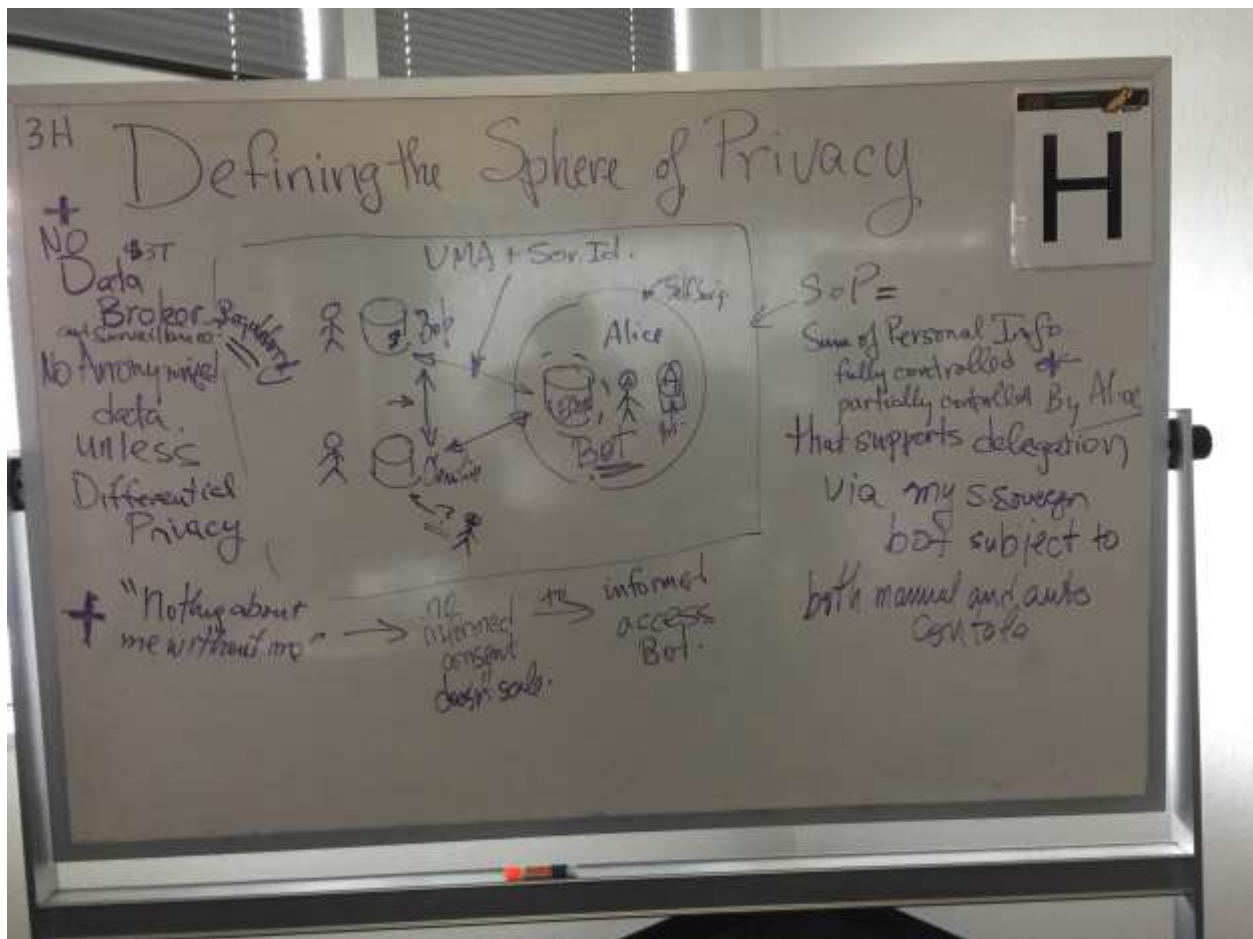 3H
Defining the Sphere of Privacy
H
+
NO $3T
Data
Broker
and Surveillance
No Anonymized
data
unless
Differential
Privacy
UMA + Sov. Id.
Bob
Alice
BOT
SoP =
Sum of Personal Info
fully controlled or
partially controlled By Alice
that supports delegation
via my
bot subject to
both manual and auto
+ "Nothing about
me without me"
informed
consent
doesn't scale.
informed
access
Bot.